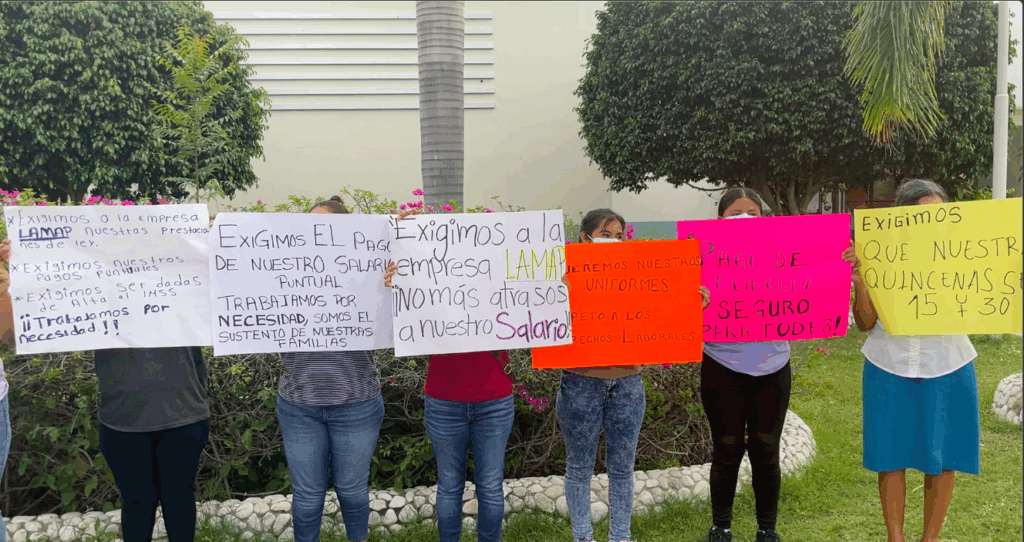 Exigimos a la empresa
LAMAP nuestras prestacio
nes de ley.
*Exigimos nuestros
Pagos Puntuales
*Exigimos ser dadas
de Alta al IMSS
¡¡Trabajamos Por
necesidad!!
EXIGIMOS EL PAGO
DE NUESTRO SALARIO
PUNTUAL
TRABAJAMOS POR
NECESIDAD, SOMOS EL
SUSTENTO DE NUESTRAS
FAMILIAS
¡Exigimos a la
empresa LAMAP
¡¡No más atrasos
a nuestro Salario!
UEREMOS NUESTROS
UNIFORMES
PETO A LOS
RECHOS LABORALES
PAGO DE
SEGURO
PARA TODAS!
EXIGIMOS
QUE NUESTR
QUINCENAS SE
15 Y 30